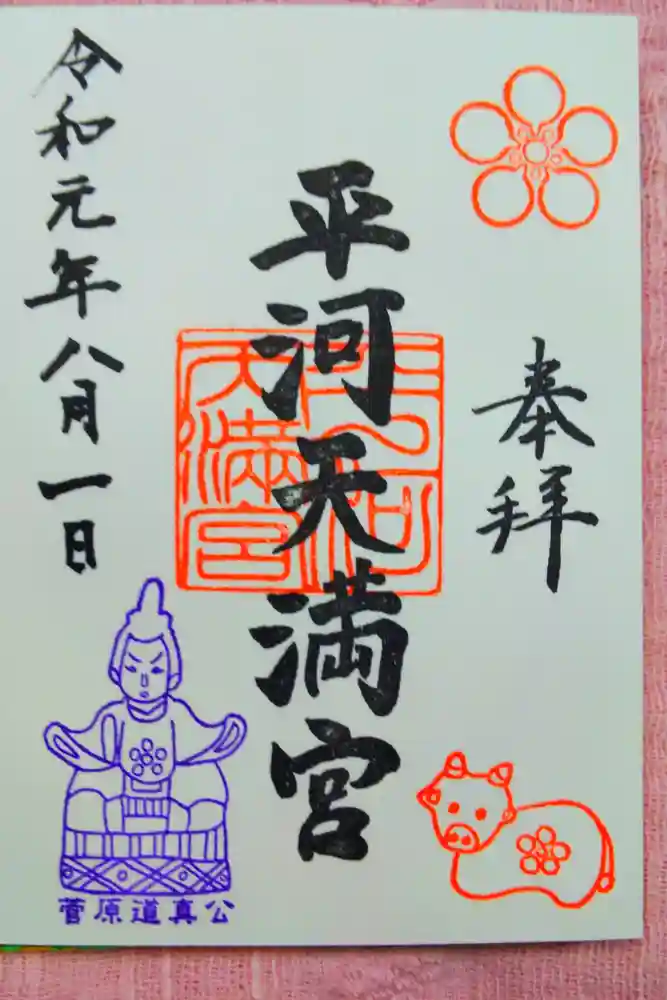 奉拝
平河天満宮
平河
天満宮
令和元年八月一日
菅原道真公